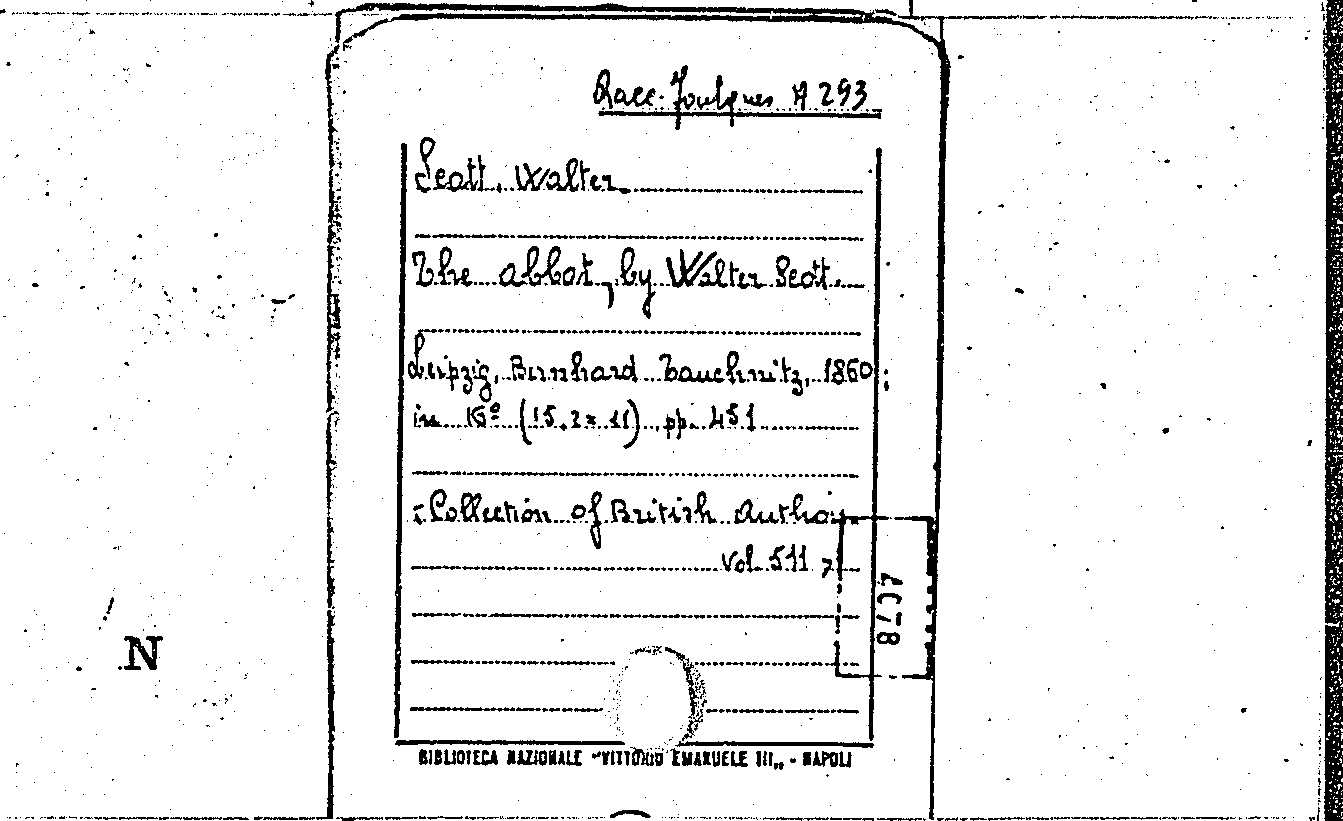 Racc. Foulques A 293
Scott, Walter.
The abbot, by Walter Scott.
Leipzig, Bernhard Tauchnitz, 1860;
in 16º (15.2x11) pp. 451
"Collection of British Author
vol. 511"
4078
N
BIBLIOTECA NAZIONALE "VITTORIO EMANUELE III„ - NAPOLI